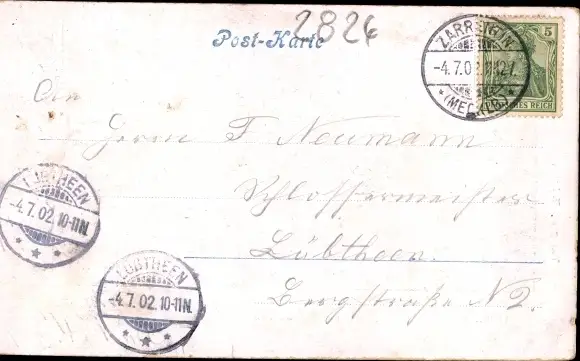 2826
Post-Karte
ZARRENTIN
-4.7.02.
(MECKLB)
5
REICH
An
Herrn F Neumann
Schlossermeister
Lübtheen.
Bergstraße N 2.
LÜBTHEEN
-4.7.02.10-11N.
LÜBTHEEN
-4.7.02.10-11N.